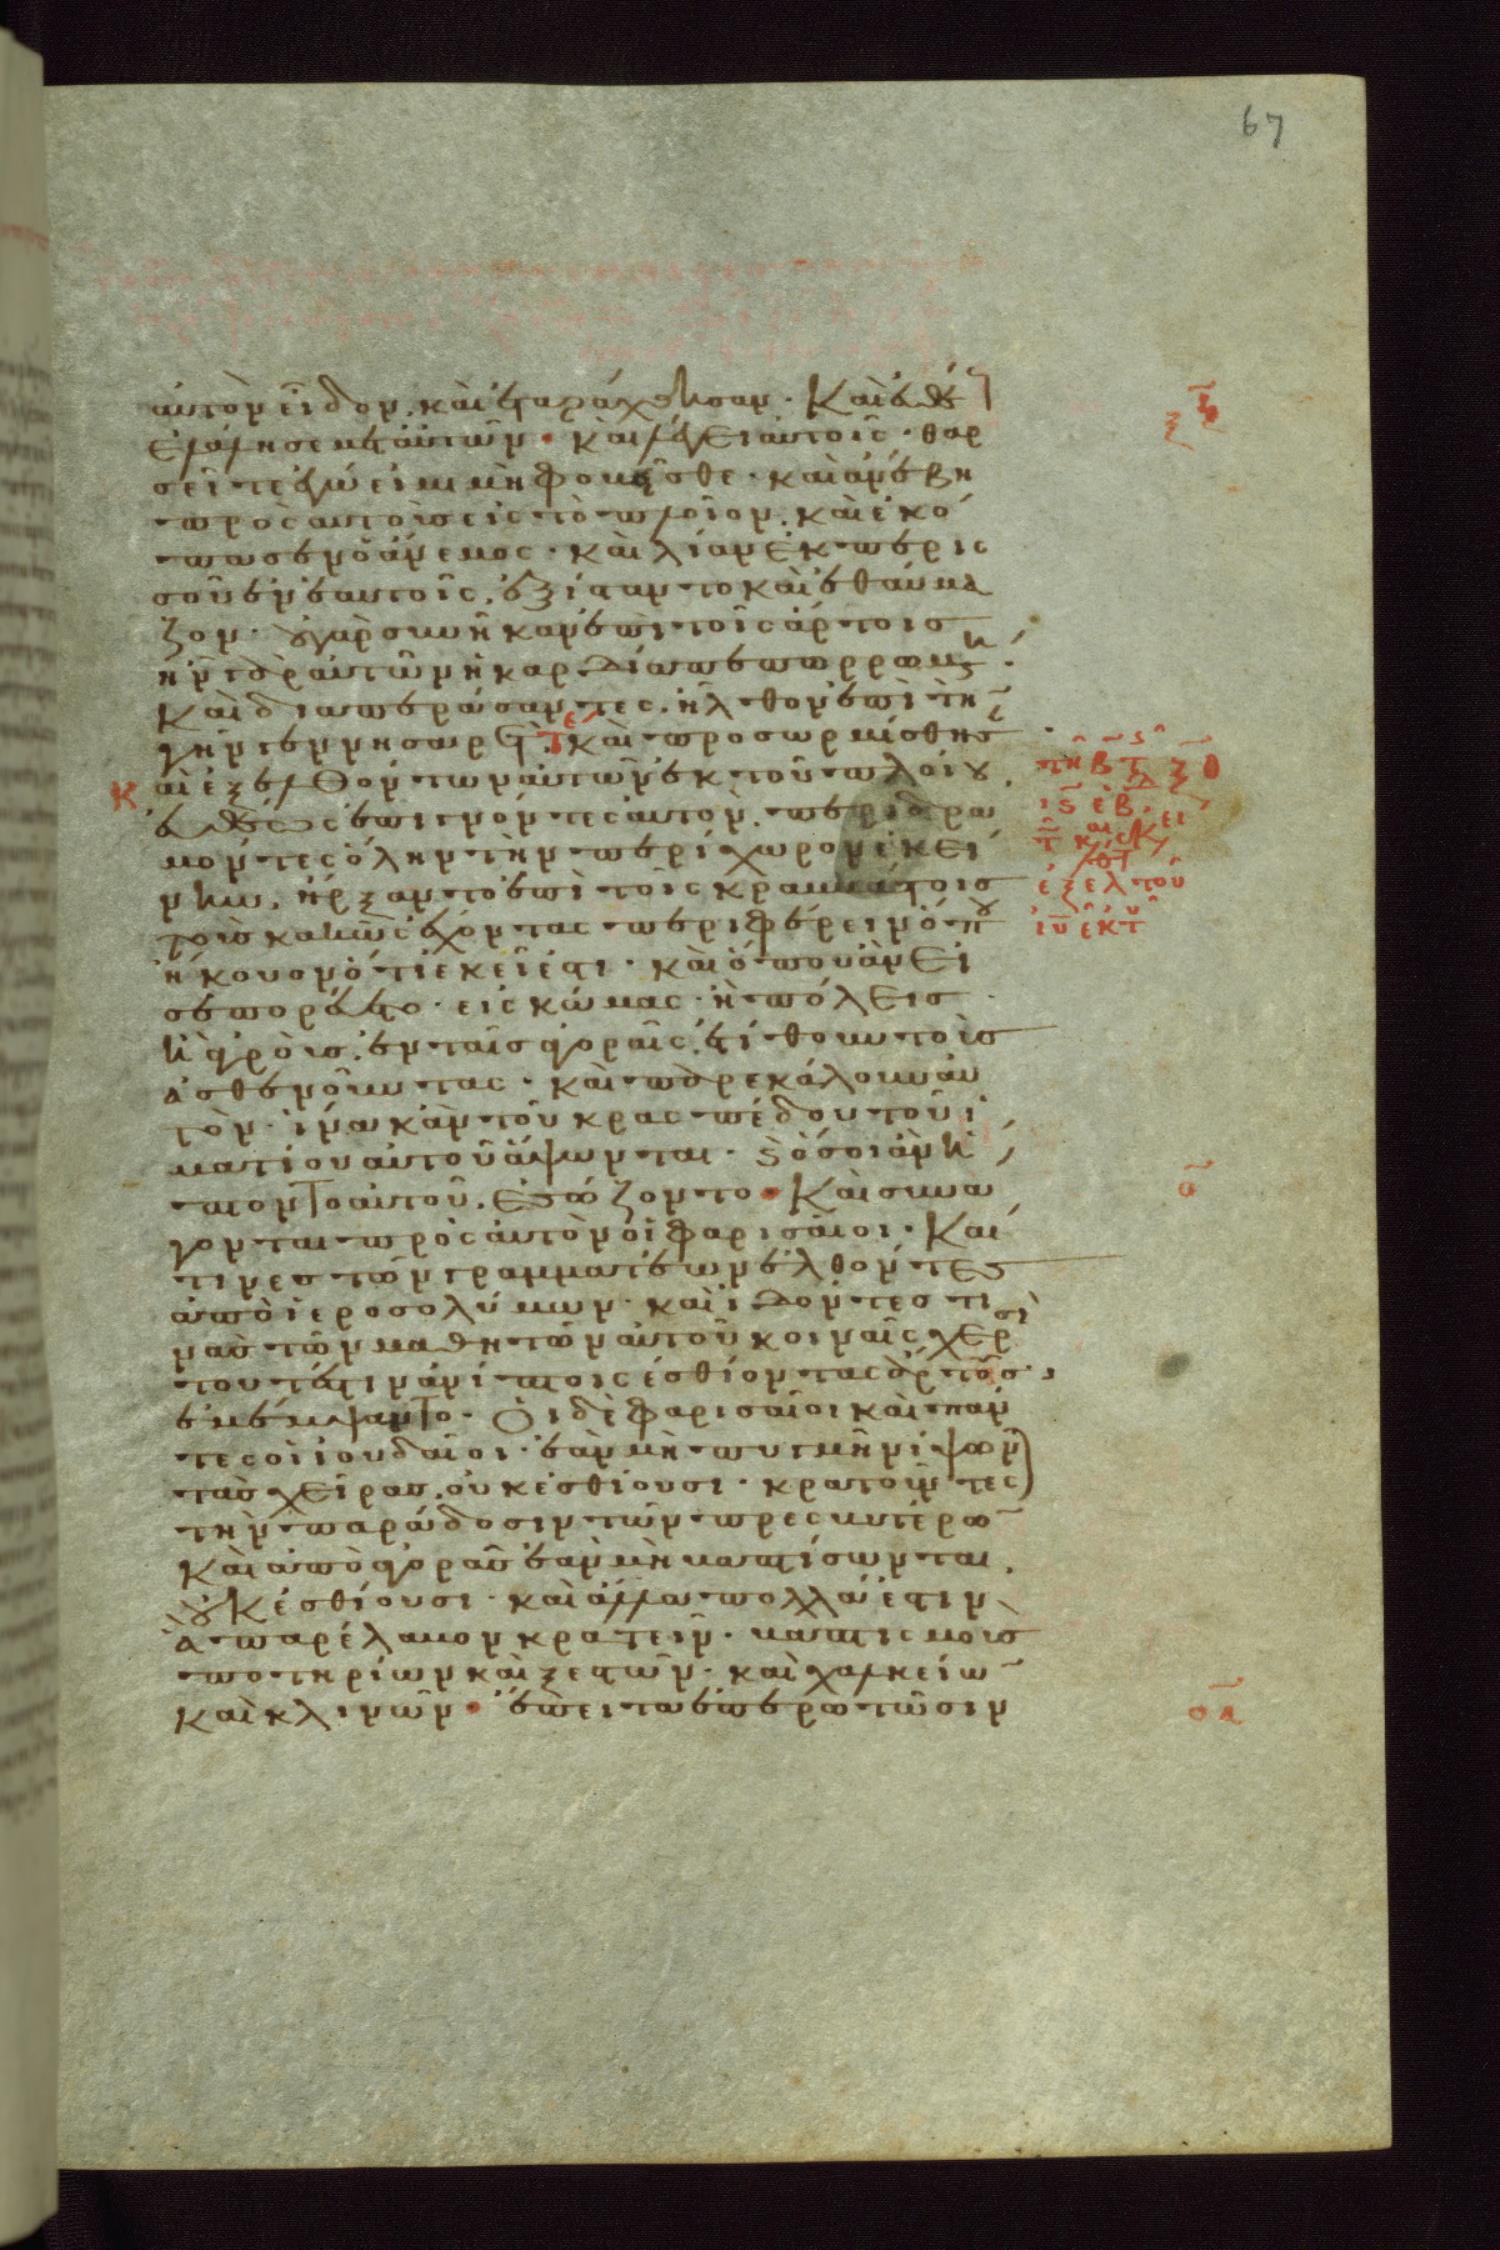 67
αὐτὸν εἶδον, καὶ ἐταράχθησαν. Καὶ εὐθέ
ἐλάλησε μετ' αὐτῶν. καὶ λέγει αὐτοῖς. θαρ
σεῖτε ἐγώ εἰμι μὴ φοβεῖσθε. καὶ ἀνέβη
πρὸς αὐτοὺς εἰς τὸ πλοῖον. καὶ ἐκό
πασεν ὁ ἄνεμος. καὶ λίαν ἐκ περισ
σοῦ ἐν ἑαυτοῖς, ἐξίσταντο καὶ ἐθαύμα
ζον. οὐ γὰρ συνῆκαν ἐπὶ τοῖς ἄρτοις
ἦν γὰρ αὐτῶν ἡ καρδία πεπωρωμένη.
Καὶ διαπεράσαντες, ἦλθον ἐπὶ τὴν
γῆν γεννησαρέτ. καὶ προσωρμίσθησ
Καὶ ἐξελθόντων αὐτῶν ἐκ τοῦ πλοίου,
εὐθέως ἐπιγνόντες αὐτὸν. περιδρα
μόντες ὅλην τὴν περίχωρον ἐκεί
νην, ἤρξαντο ἐπὶ τοῖς κραββάτοις
τοὺς κακῶς ἔχοντας περιφέρειν ὅπου
ἤκουον ὅτι ἐκεῖ ἐστι. καὶ ὅπου ἂν εἰ
σεπορεύετο. εἰς κώμας. ἢ πόλεις.
ἢ ἀγροὺς. ἐν ταῖς ἀγοραῖς, ἐτίθουν τοὺς
ἀσθενοῦντας. καὶ παρεκάλουν αὐ
τὸν. ἵνα κἂν τοῦ κρασπέδου τοῦ ἱ
ματίου αὐτοῦ ἅψωνται. καὶ ὅσοι ἂν ἥ
πτοντο αὐτοῦ, ἐσώζοντο. Καὶ συνά
γονται πρὸς αὐτὸν οἱ φαρισαῖοι. Καί
τινες τῶν γραμματέων ἐλθόντες
ἀπὸ ἱεροσολύμων. καὶ ἰδόντες τι
νὰς τῶν μαθητῶν αὐτοῦ κοιναῖς χερσὶ
τουτέστιν ἀνίπτοις ἐσθίοντας ἄρτους.
ἐμέμψαντο. Οἱ δὲ φαρισαῖοι καὶ πάν
τες οἱ ἰουδαῖοι. ἐὰν μὴ πυγμῇ νίψων
τὰς χεῖρας, οὐκ ἐσθίουσι. κρατοῦντες
τὴν παράδοσιν τῶν πρεσβυτέρων
Καὶ ἀπὸ ἀγορᾶς ἐὰν μὴ βαπτίσωνται,
οὐκ ἐσθίουσι. καὶ ἄλλα πολλά ἐστιν
ἃ παρέλαβον κρατεῖν. βαπτισμοὺς
ποτηρίων καὶ ξεστῶν. καὶ χαλκείων
καὶ κλινῶν. ἔπειτα ἐπερωτῶσιν
ο
οα